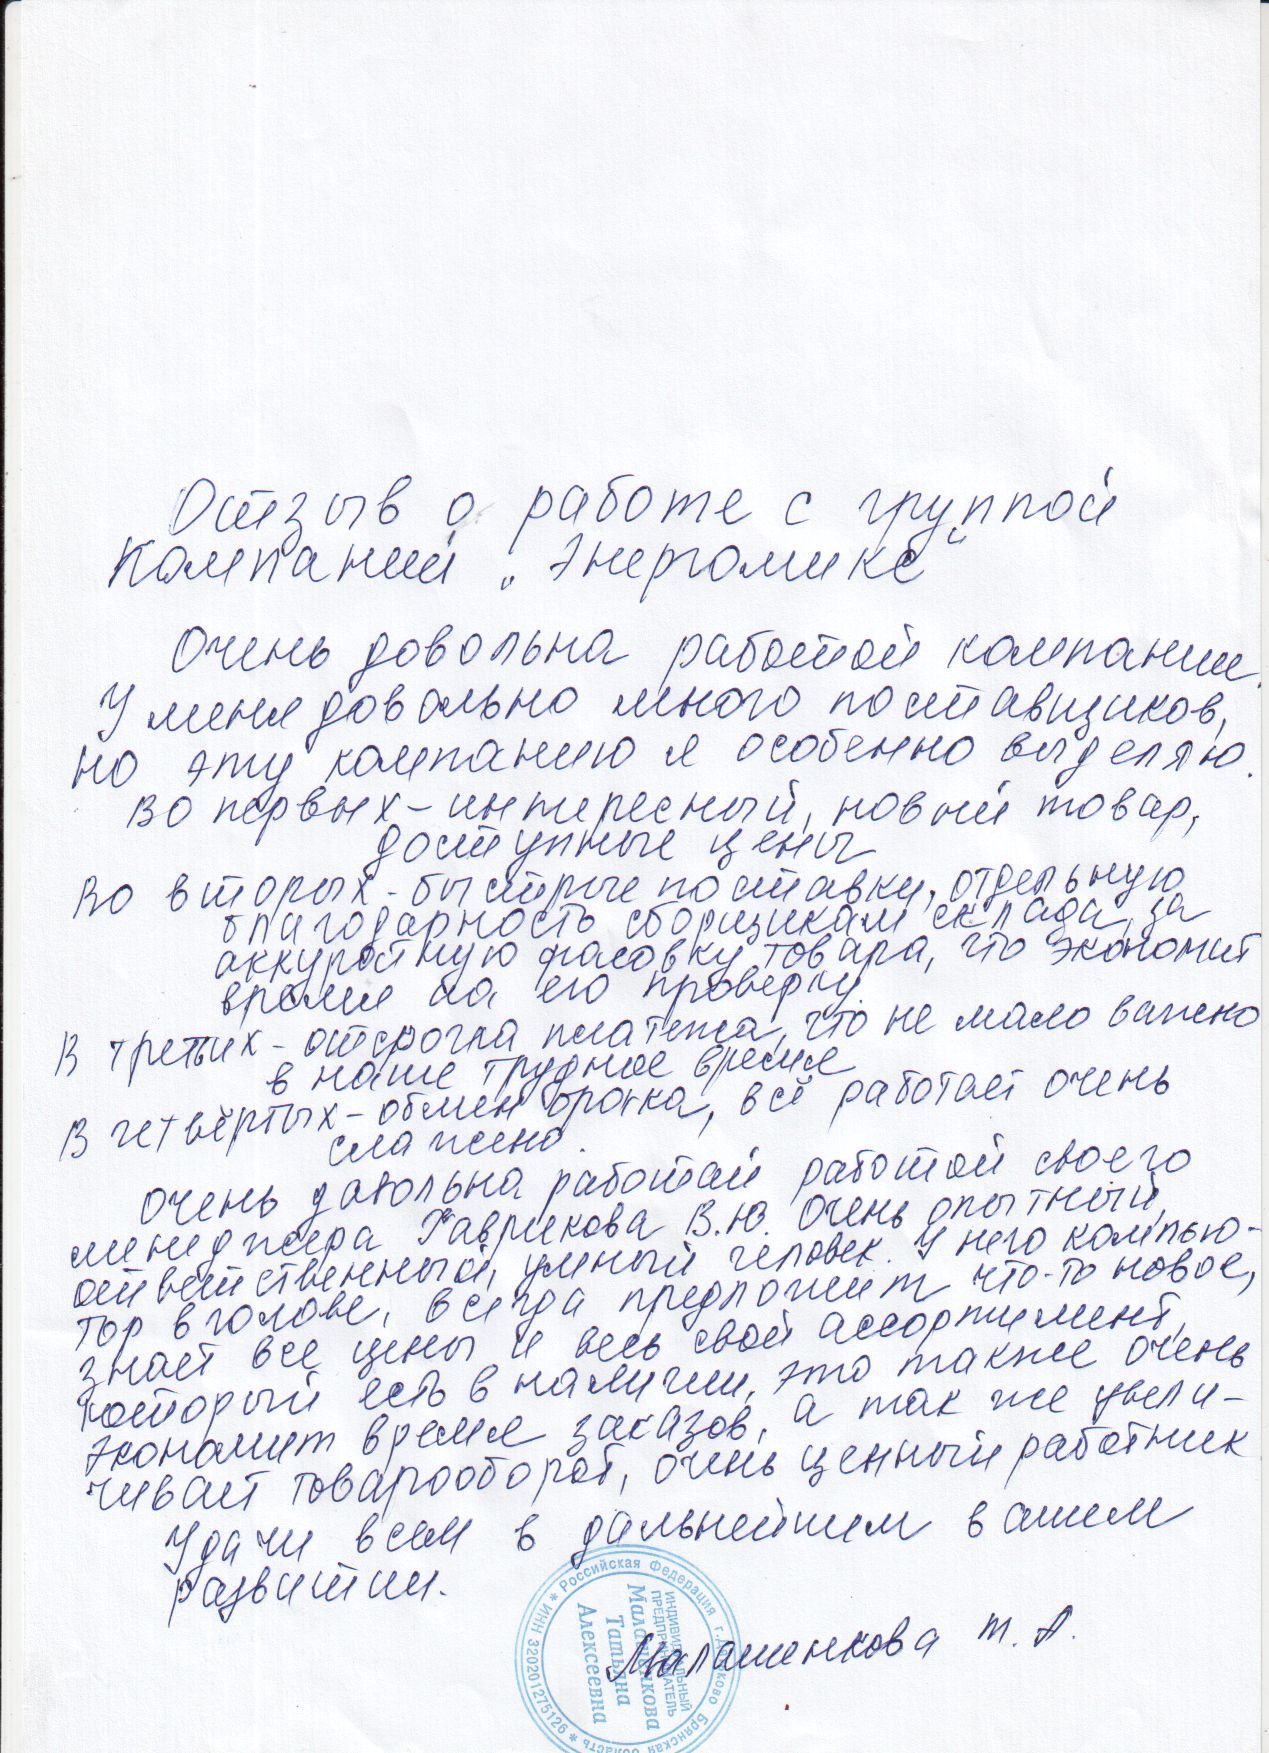 Отзыв о работе с группой
компаний "Энергомикс"
Очень довольна работой компании.
У меня довольно много поставщиков,
но эту компанию я особенно выделяю.
Во первых - интересный, новый товар,
доступные цены
Во вторых - быстрые поставки, отдельную
благодарность сборщикам склада, за
аккуратную фасовку товара, что экономит
время на его проверку.
В третьих - отсрочка платежа, что не мало важно
в наше трудное время
В четвёртых - обмен брака, всё работает очень
слажено.
Очень довольна работай работой своего
менеджера Хаврикова В.Ю. Очень опытный,
ответственный, умный человек. У него компью-
тор в голове, всегда предложит что-то новое,
знает все цены и весь свой ассортимент,
который есть в наличии, это также очень
экономит время заказов, а так же увели-
чивает товарооборот, очень ценный работник
Удачи всем в дальнейшем вашем
развитии.
Малашенкова Т. А.
* Российская Федерация г. Брянская область * ИНН 320201275126 *
ИНДИВИДУАЛЬНЫЙ
ПРЕДПРИНИМАТЕЛЬ
Малашенкова
Татьяна
Алексеевна